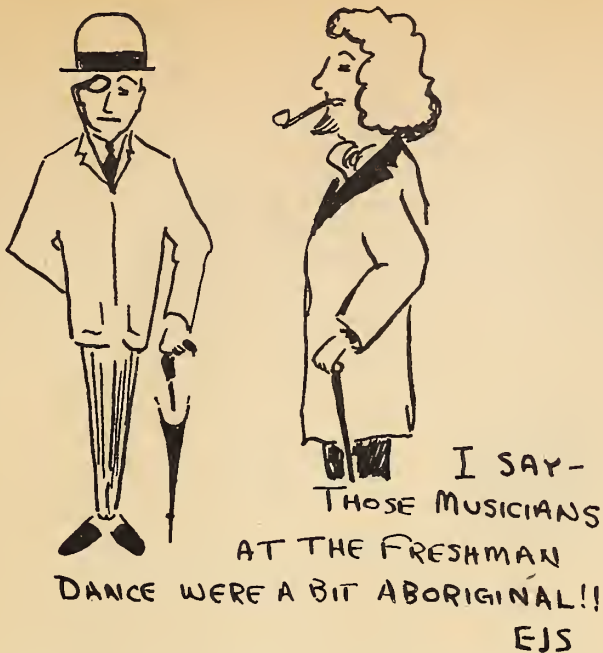 I SAY-
THOSE MUSICIANS
AT THE FRESHMAN
DANCE WERE A BIT ABORIGINAL!!
EJS